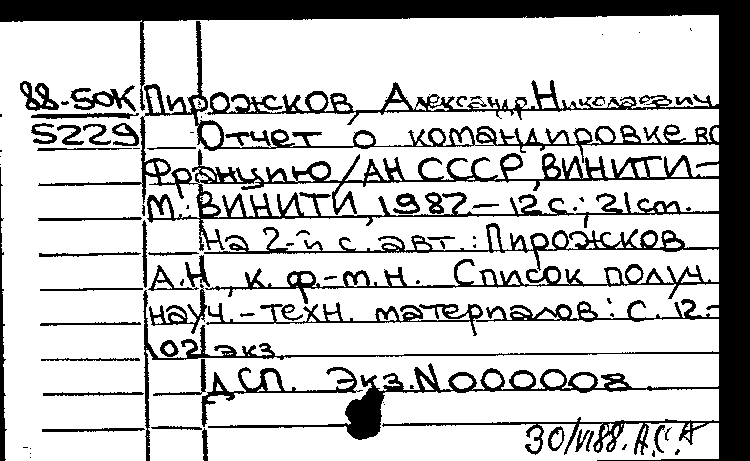 88-50К Пирожков, Александр Николаевич.
5229 Отчет о командировке во
Францию/АН СССР, ВИНИТИ.-
М.: ВИНИТИ, 1987.- 12 с.; 21 см.
На 2-й с. авт.: Пирожков
А.Н., к. ф.-м.н. Список получ.
науч.-техн. материалов: с. 12.-
102 экз.
ДСП. Экз. N 000008.
30/VI 88. А.С.А